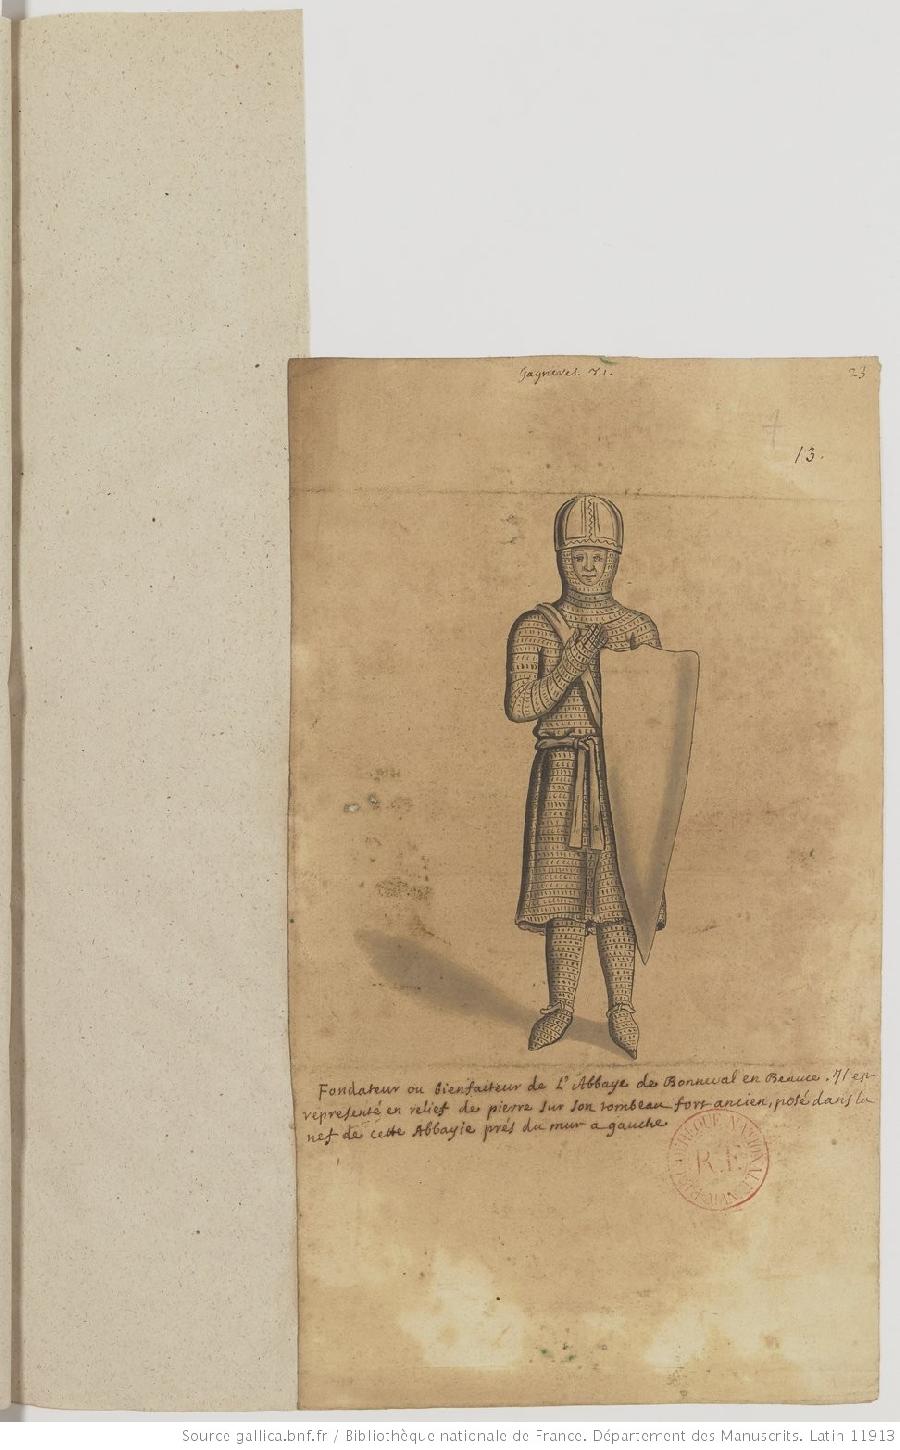 Gagnieres. 71.
23
13.
Fondateur ou bienfaiteur de L'Abbaye de Bonneval en Beauce. Il est
representé en relief de pierre sur son tombeau fort ancien, posé dans la
nef de cette Abbayie prés du mur a gauche
BIBLIOTHEQUE NATIONALE
R.F.
Source gallica.bnf.fr / Bibliothèque nationale de France. Département des Manuscrits. Latin 11913